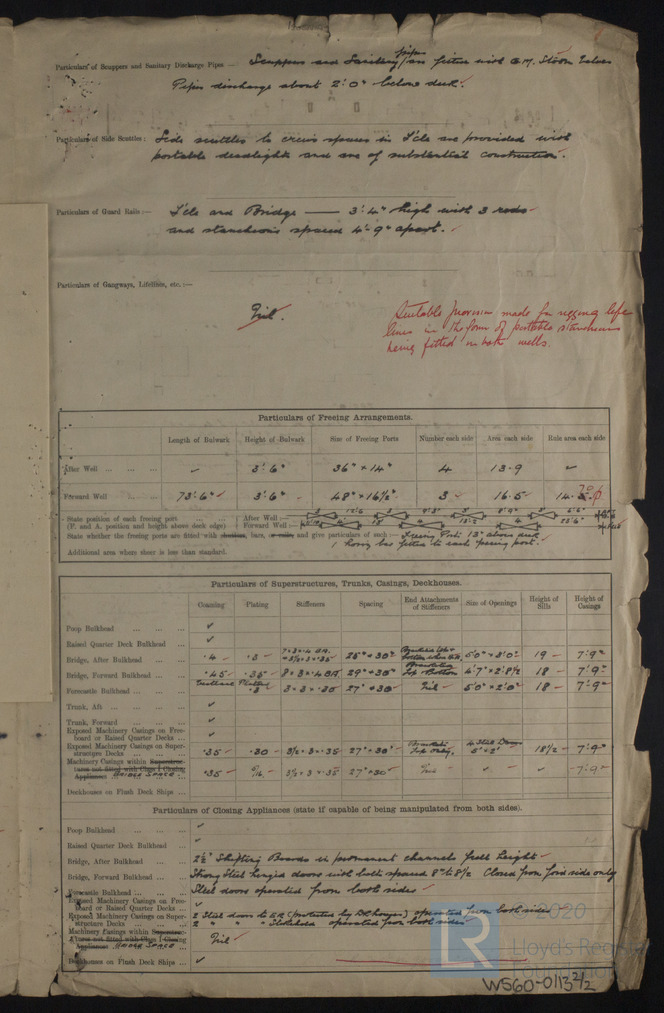 Particulars of Scuppers and Sanitary Discharge Pipes :— Scuppers and Sanitary pipes are fitted with G.M. Storm Valves
Pipes discharge about 2'.0" below deck.
Particulars of Side Scuttles :— Side scuttles to crews spaces in F'cle are provided with
portable deadlights and are of substantial construction.
Particulars of Guard Rails :— F'cle and Bridge — 3'.4" high with 3 rods
and stanchions spaced 4'-9" apart.
Particulars of Gangways, Lifelines, etc. :—
Nil.
Suitable provision made for rigging life
lines in the form of portable stanchions
being fitted in both wells.
Particulars of Freeing Arrangements.
Length of Bulwark Height of Bulwark Size of Freeing Ports Number each side Area each side Rule area each side
After Well ... ... ... ✓ 3'.6" 36" × 14" 4 13.9 ✓
Forward Well ... ... 73'.6" 3'.6" 48" × 16½" 3 16.5
State position of each freeing port ... ... After Well :—
(F. and A. position and height above deck edge) Forward Well :—
State whether the freeing ports are fitted with shutters, bars, or rails, and give particulars of each :— Freeing Ports 13" above deck
1 horiz bar fitted to each freeing port.
Additional area where sheer is less than standard.
Particulars of Superstructures, Trunks, Casings, Deckhouses.
Coaming Plating Stiffeners Spacing End Attachments of Stiffeners Size of Openings Height of Sills Height of Casings
Poop Bulkhead ... ... ... ✓
Raised Quarter Deck Bulkhead ... ✓
Bridge, After Bulkhead ... ... .4 .3 25" + 30" 5'0" × 3'.0" 19 7'.9"
Bridge, Forward Bulkhead ... ... .45 .35 29" + 30" Bracketed Top & Bottom 4'.7" × 2'.8½ 18 7'.9"
Forecastle Bulkhead ... ... ... .3 3 × 3 × .30 27" + 30 Nil 5'0" × 2'.0" 18 7'.9"
Trunk, Aft ... ... ... ✓
Trunk, Forward ... ... ... ✓
Exposed Machinery Casings on Freeboard or Raised Quarter Decks ... ✓
Exposed Machinery Casings on Superstructure Decks ... ... ... .35 .30 3½ × 3 × .35 27" × 30" Bracketed Top only. 18½ 7'.9"
Machinery Casings within Superstructures not fitted with Class 1 Closing Appliances BRIDGE SPACE ... .35 27" × 30 Nil ✓ ✓ 7'.9"
Deckhouses on Flush Deck Ships ...
Particulars of Closing Appliances (state if capable of being manipulated from both sides).
Poop Bulkhead ... ... ... ✓
Raised Quarter Deck Bulkhead ... ✓
Bridge, After Bulkhead ... ... 2½" Shifting Boards in permanent channels full height
Bridge, Forward Bulkhead ... ... Strong Steel hinged doors with bolts spaced 8" to 8½ Closed from fore side only
Forecastle Bulkhead ... ... ... Steel doors operated from both sides
Exposed Machinery Casings on Freeboard or Raised Quarter Decks ... ✓
Exposed Machinery Casings on Superstructure Decks ... ... ... 2 Steel doors to E.R. (protected by Dk houses) operated from both sides
2 " " " Stokehold operated from both sides
Machinery Casings within Superstructures not fitted with Class 1 Closing Appliances BRIDGE SPACE ... Nil
Deckhouses on Flush Deck Ships ... ✓
© 2020
LR
Lloyd's Register
Foundation
W560-0113 2/2